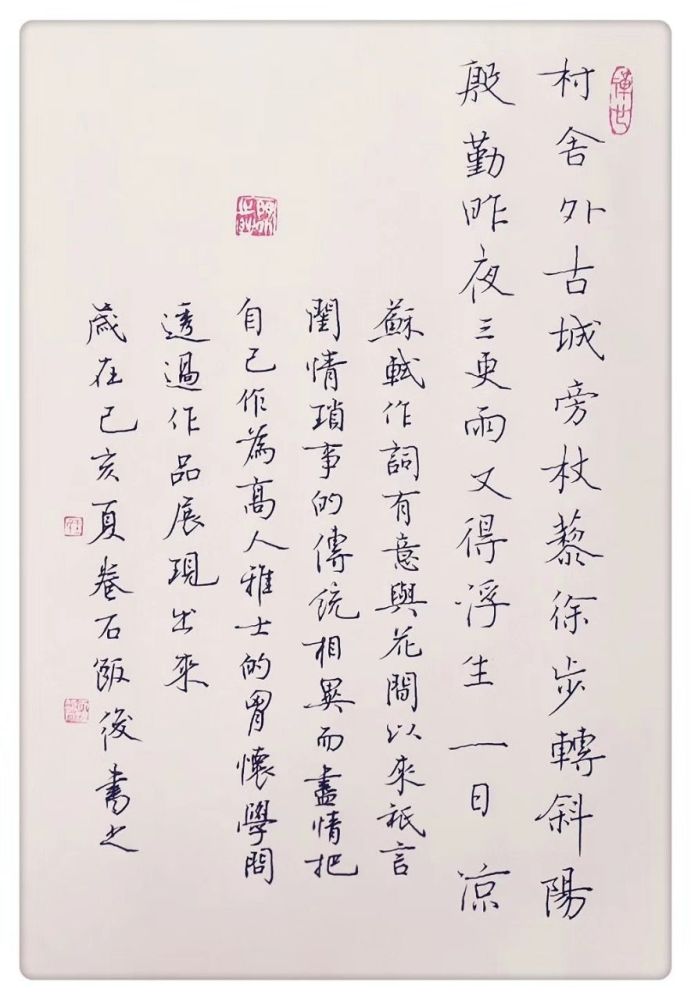 村舍外古城旁杖藜徐步轉斜陽
殷勤昨夜三更雨又得浮生一日涼
蘇軾作詞有意與花間以來祇言
閨情瑣事的傳統相異而盡情把
自己作為高人雅士的胃懷學問
透過作品展現出來
歲在己亥夏卷石飯後書之